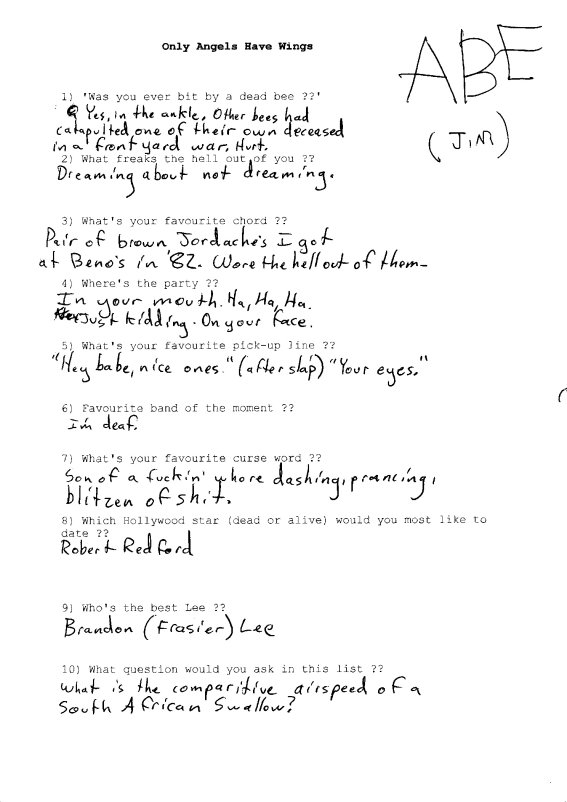 Only Angels Have Wings
ABE
(JIM)
1) 'Was you ever bit by a dead bee ??'
Yes, in the ankle. Other bees had
catapulted one of their own deceased
in a front yard war. Hurt.
2) What freaks the hell out of you ??
Dreaming about not dreaming.
3) What's your favourite chord ??
Pair of brown Jordache's I got
at Beno's in '82. Wore the hell out of them—
4) Where's the party ??
In your mouth. Ha, Ha, Ha.
Just kidding. On your face.
5) What's your favourite pick-up line ??
"Hey babe, nice ones." (after slap) "Your eyes."
6) Favourite band of the moment ??
I'm deaf.
7) What's your favourite curse word ??
Son of a fuckin' whore dashing, prancing,
blitzen of shit.
8) Which Hollywood star (dead or alive) would you most like to
date ??
Robert Redford
9) Who's the best Lee ??
Brandon (Frasier) Lee
10) What question would you ask in this list ??
What is the comparitive airspeed of a
South African Swallow?